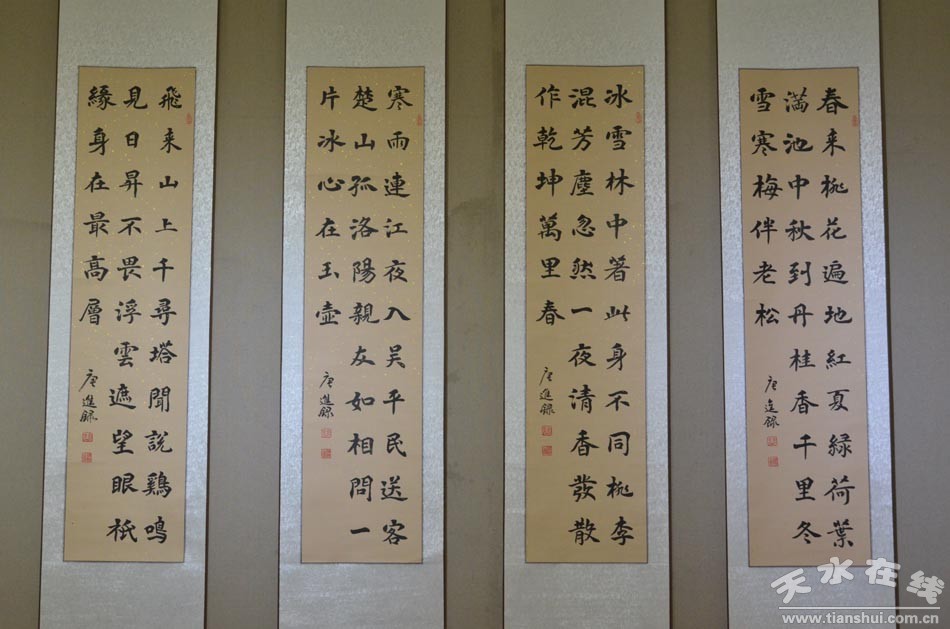 春来桃花遍地紅夏緑荷葉
滿池中秋到丹桂香千里冬
雪寒梅伴老松
唐進録
冰雪林中著此身不同桃李
混芳塵忽然一夜清香發散
作乾坤萬里春
唐進録
寒雨連江夜入吴平民送客
楚山孤洛陽親友如相問一
片冰心在玉壺
唐進録
飛来山上千尋塔聞說鷄鳴
見日昇不畏浮雲遮望眼祇
緣身在最高層
唐進録
天水在线
www.tianshui.com.cn